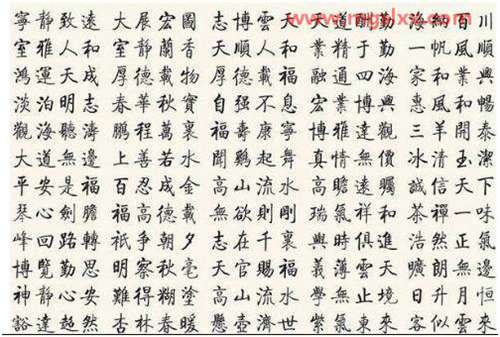 www.mgalxx.com
寧静致遠 大展宏圖 志博雲天 天道酬勤 海納百川
室雅人和 室静蘭香 天順人和 業精于勤 一帆風順
鴻運天成 厚德載物 厚德載福 融通四海 和業興
淡泊明志 春華秋實 自强不息 宏博興 惠風和暢
觀海聽濤 鵬程萬裏 福壽康寧 博雅達觀 三羊開泰
大道無邊 上善若水 聞鷄起舞 真情無價 冰清玉潔
平安是福 百忍成金 高山流水 高瞻遠矚 誠信天下
琴心劍膽 福高德載 無欲則剛 瑞氣祥和 茶禪一味
峰回路轉 祇争朝夕 志在千裏 與時俱進 浩然正氣
博覽勤思 明察秋毫 天官賜福 義薄雲天 曠朗無邊
神静心安 難得糊塗 高山流水 學無止境 日升月恒
豁達超然 杏林春暖 懸壺濟世 紫氣東來 客似雲來